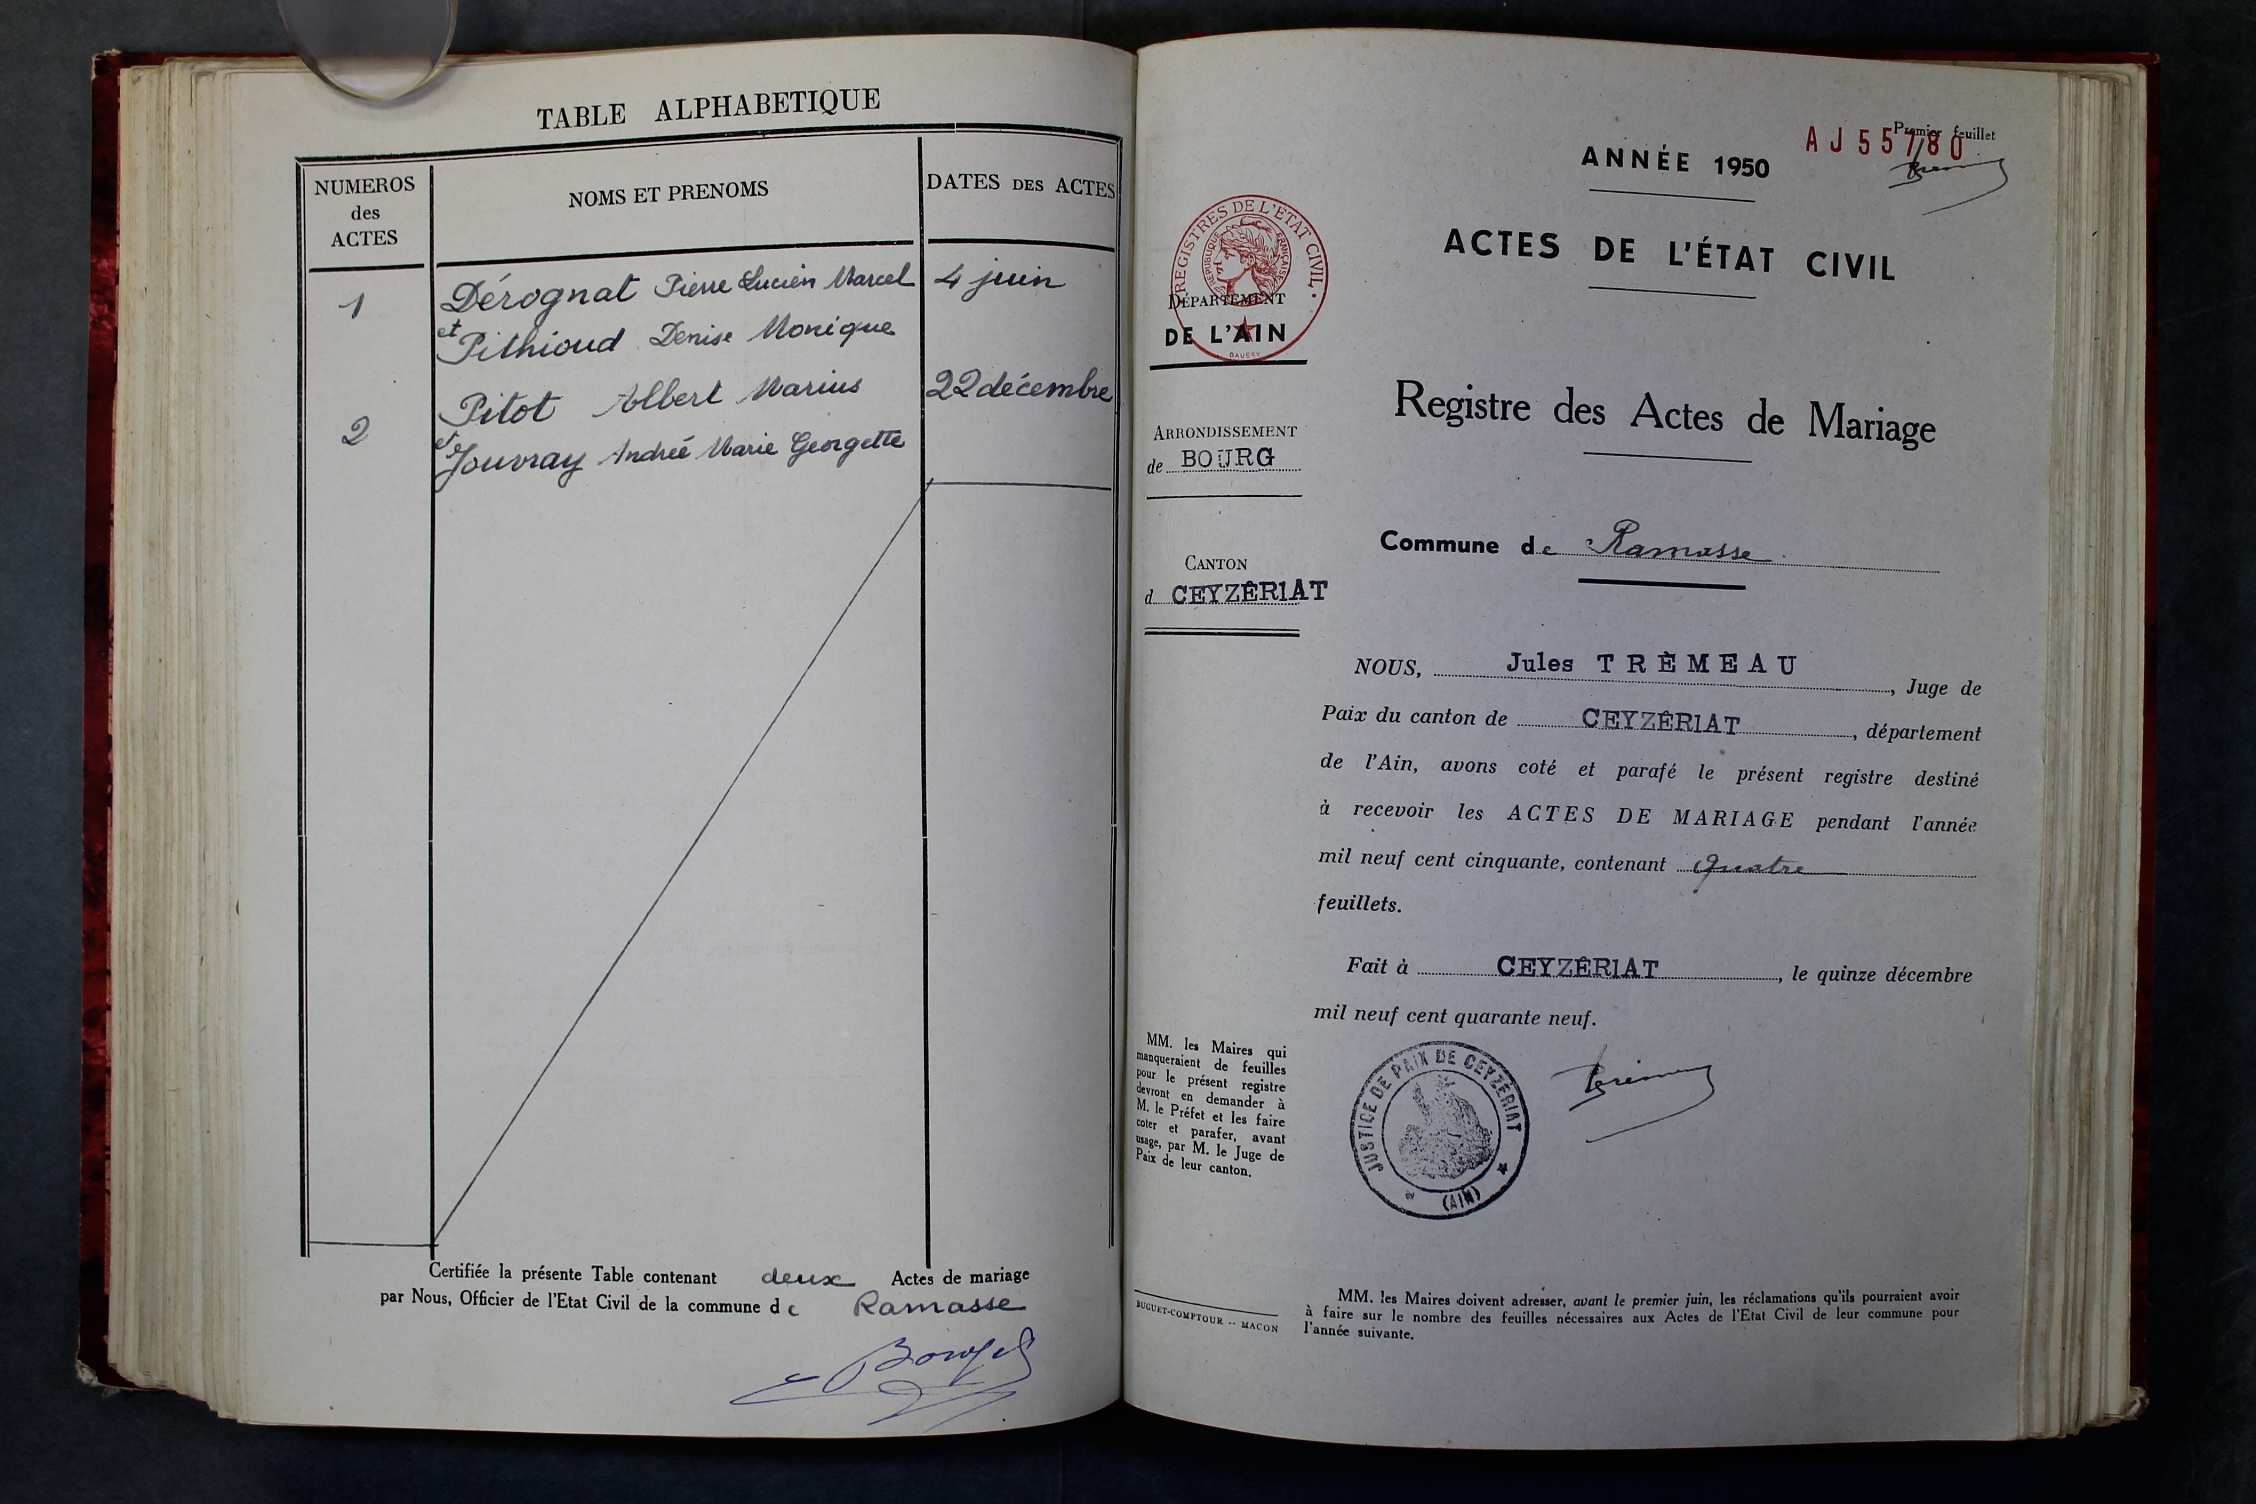 TABLE ALPHABETIQUE
NUMEROS
des
ACTES
NOMS ET PRENOMS
DATES DES ACTES
1
Dérognat Pierre Lucien Marcel
4 juin
et Pithioud Denise Monique
2
Pitot Albert Marius
22 décembre
et Jouvray Andrée Marie Georgette
Certifiée la présente Table contenant deux Actes de mariage
par Nous, Officier de l'Etat Civil de la commune de Ramasse
Premier feuillet
AJ55780
ANNÉE 1950
ACTES DE L'ÉTAT CIVIL
REGISTRES DE L'ETAT CIVIL
REPUBLIQUE FRANÇAISE
DÉPARTEMENT
DE L'AIN
Registre des Actes de Mariage
ARRONDISSEMENT
de BOURG
Commune de Ramasse
CANTON
d CEYZÊRIAT
NOUS, Jules TRÈMEAU, Juge de
Paix du canton de CEYZÊRIAT, département
de l'Ain, avons coté et parafé le présent registre destiné
à recevoir les ACTES DE MARIAGE pendant l'année
mil neuf cent cinquante, contenant Quatre
feuillets.
Fait à CEYZÊRIAT, le quinze décembre
mil neuf cent quarante neuf.
JUSTICE DE PAIX DE CEYZÉRIAT
(AIN)
MM. les Maires qui
manqueraient de feuilles
pour le présent registre
devront en demander à
M. le Préfet et les faire
coter et parafer, avant
usage, par M. le Juge de
Paix de leur canton.
BUGUET-COMPTOUR -- MACON
MM. les Maires doivent adresser, avant le premier juin, les réclamations qu'ils pourraient avoir
à faire sur le nombre des feuilles nécessaires aux Actes de l'Etat Civil de leur commune pour
l'année suivante.